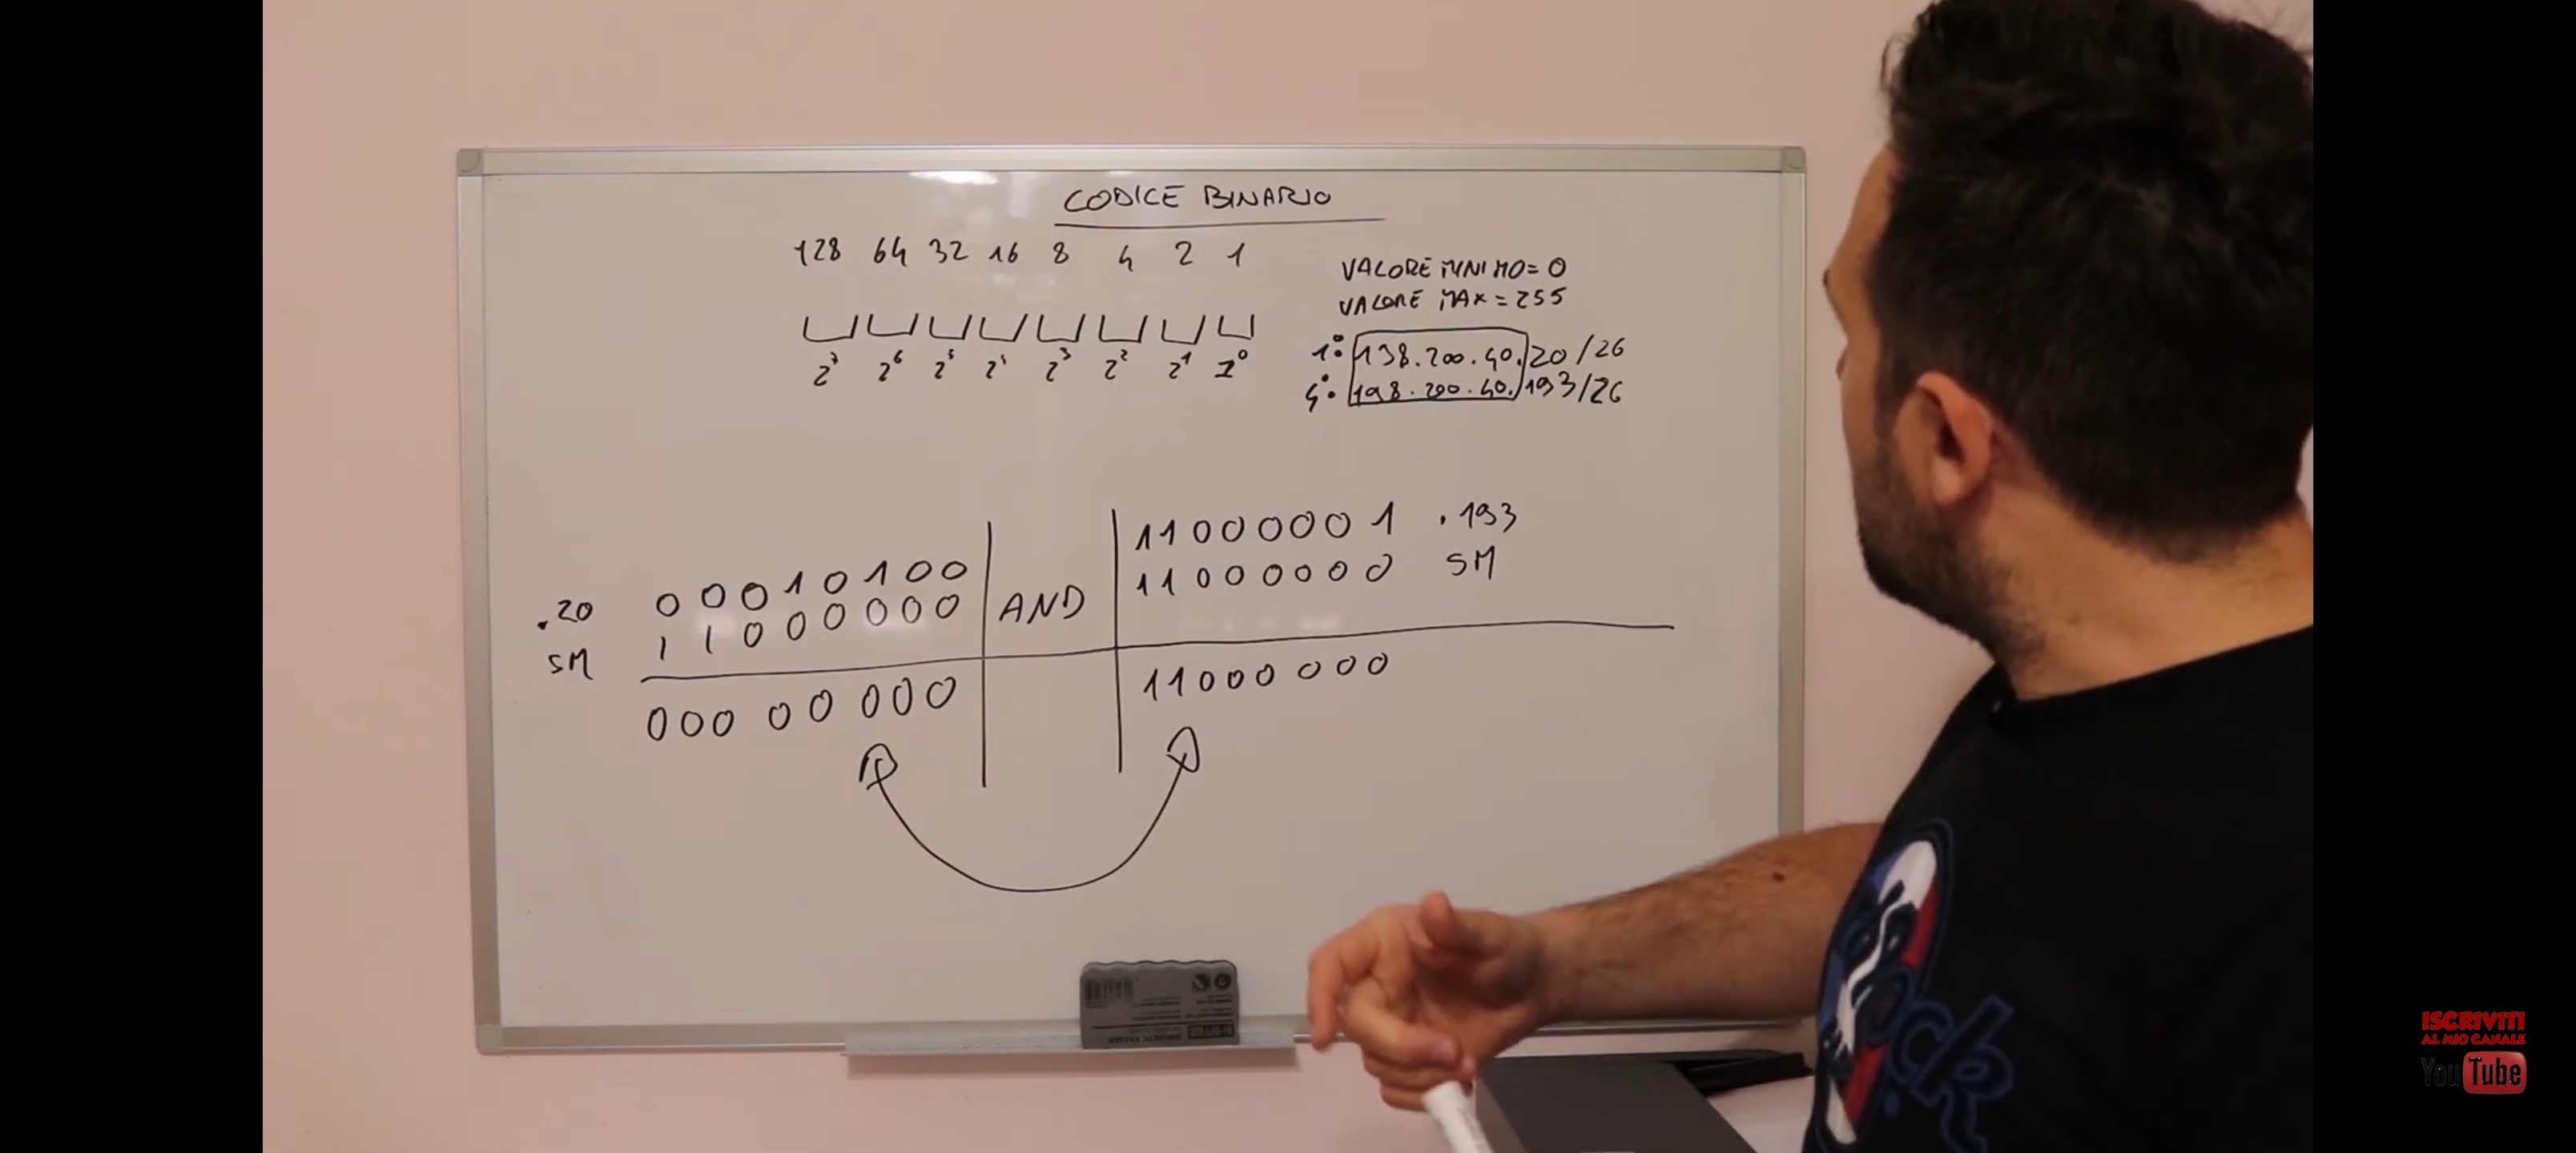 CODICE BINARIO
128 64 32 16 8 4 2 1
2⁷ 2⁶ 2⁵ 2⁴ 2³ 2² 2¹ 2⁰
VALORE MINIMO = 0
VALORE MAX = 255
1°: 198.200.40.20/26
4°: 198.200.40.193/26
.20 00010100
SM 11000000
00000000
AND
11000001 .193
11000000 SM
11000000
ISCRIVITI
AL MIO CANALE
YouTube